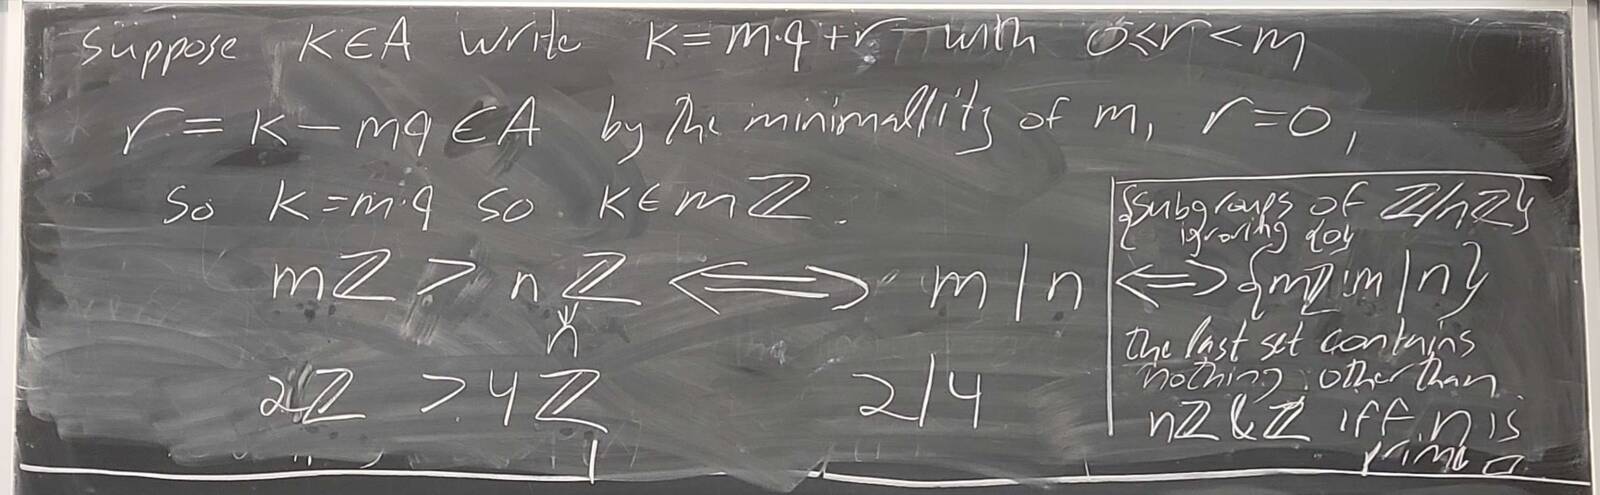 Suppose K∈A write K=m·q+r with 0≤r<m
r=K-mq∈A by the minimallity of m, r=0,
So K=m·q so K∈mℤ.
mℤ > nℤ ⟺ m|n
n
2ℤ > 4ℤ 2|4
{Subgroups of ℤ/nℤ}
ignoring {0}
⟺ {mℤ:m|n}
The last set contains
nothing other than
nℤ & ℤ iff n is
prime □